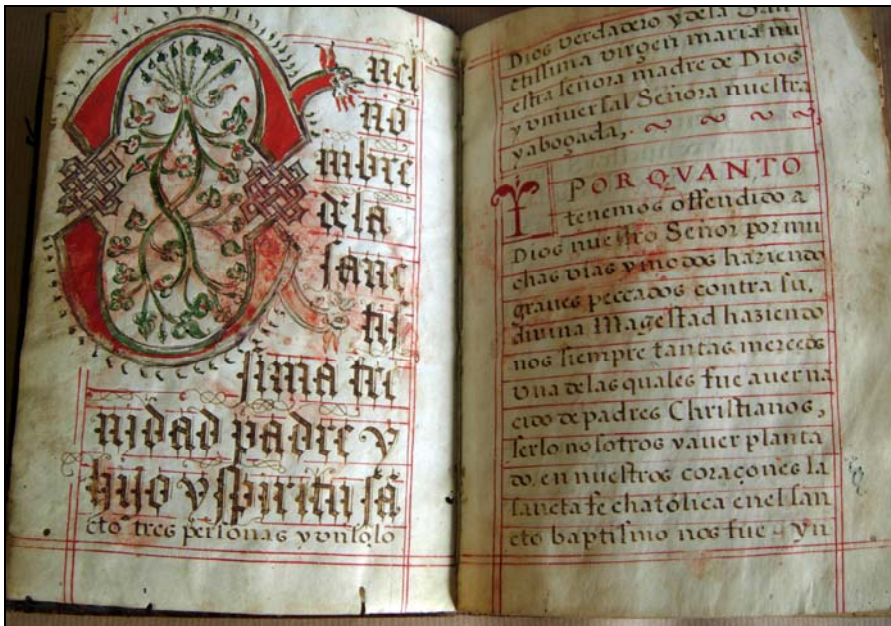 E nel
no
mbre
dela
sanc
tis
sima tri
nidad padre y
hijo y spiritu sã
cto tres personas y un solo
Dios verdadero y dela San
ctissima virgen maria nu
estra señora madre de Dios
y universal Señora nuestra
y abogada,
POR QVANTO
tenemos offendido a
Dios nuestro Señor por mu
chas vias y modos haziendo
graves peccados contra su,
divina Magestad haziendo
nos siempre tantas mercedes
una delas quales fue aver na
cido de padres Christianos,
serlo nosotros y aver planta
do, en nuestros coraçones la
sancta fe chatólica enel san
cto baptismo nos fue yn